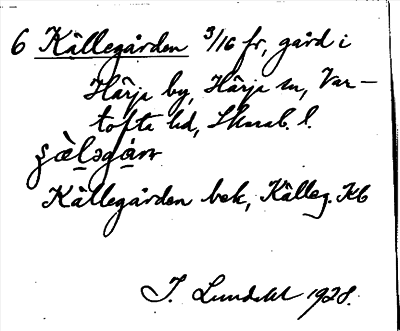 6 Källegården 3/16 fr, gård i
Härja by, Härja sn, Var-
tofta hd, Skarab. l.
Källegården bek, Källeg. Kb
J. Lundahl 1928.